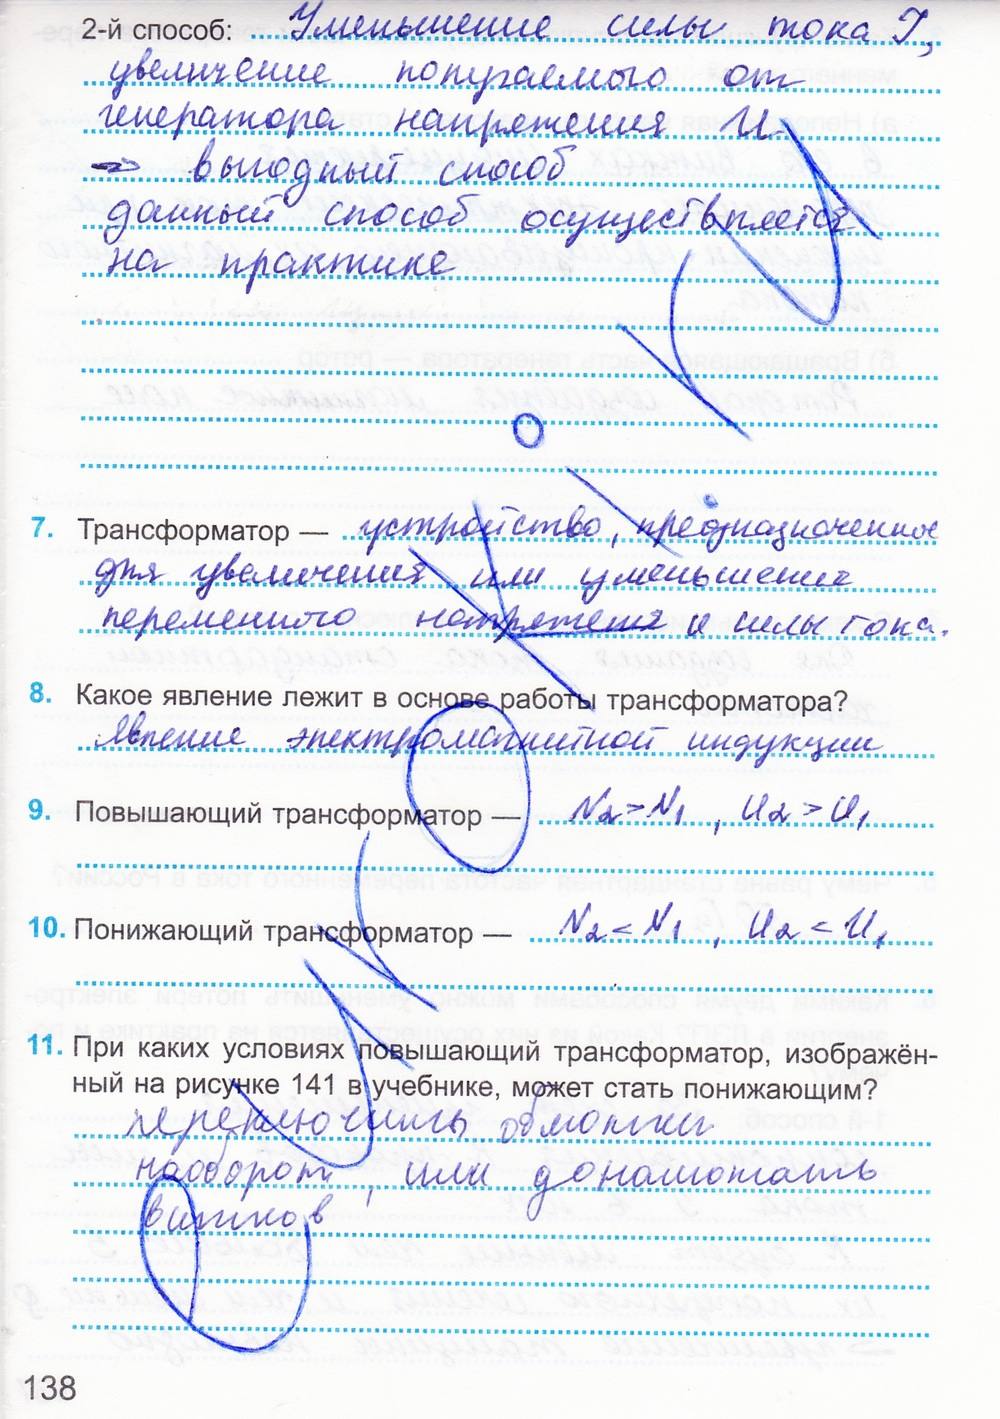 2-й способ: Уменьшение силы тока I,
увеличение попугаемого от
генератора напряжения U
=> выгодный способ
данный способ осуществляется
на практике
7. Трансформатор — устройство, предназначенное
для увеличения или уменьшения
переменного напряжения и силы тока.
8. Какое явление лежит в основе работы трансформатора?
Явление электромагнитной индукции
9. Повышающий трансформатор — N2 > N1, U2 > U1
10. Понижающий трансформатор — N2 < N1, U2 < U1
11. При каких условиях повышающий трансформатор, изображён-
ный на рисунке 141 в учебнике, может стать понижающим?
переключить обмотки
наоборот, или домотать
витков
138